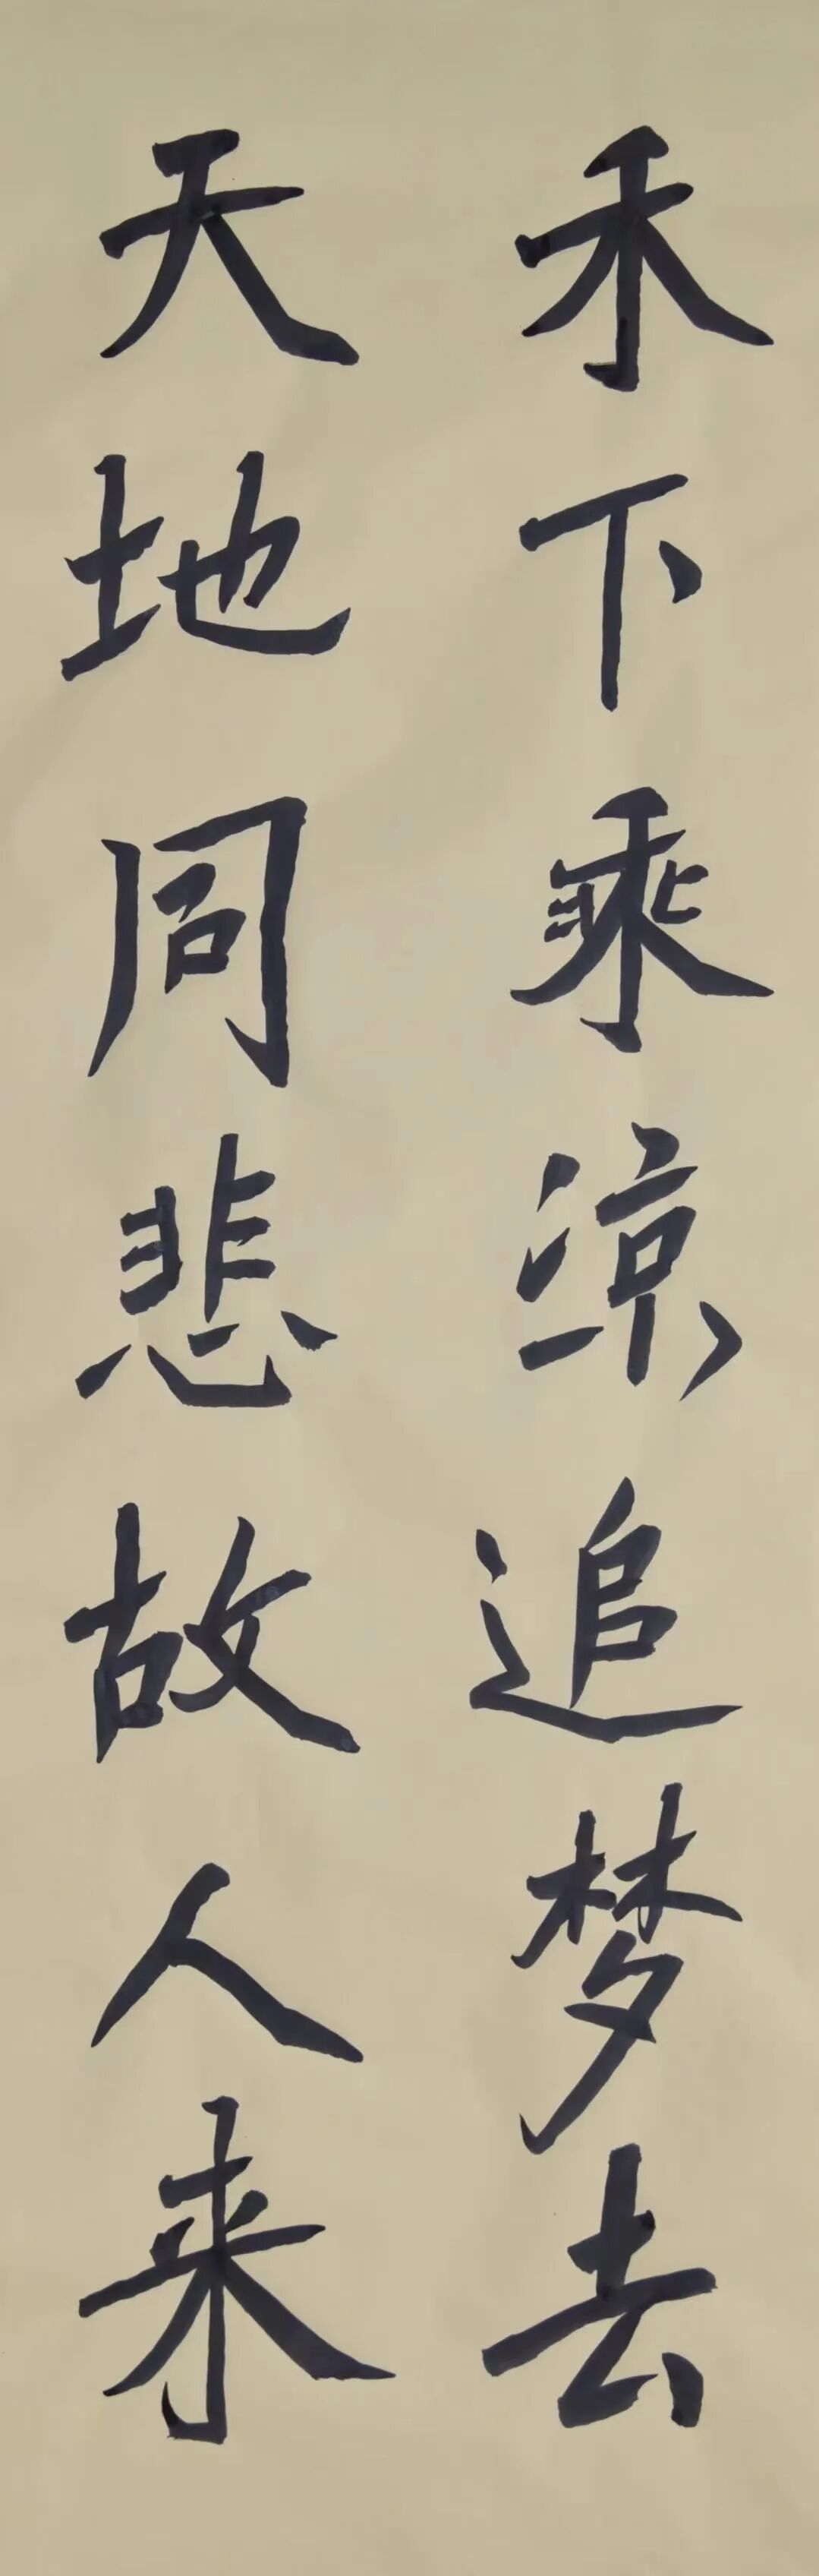 禾下乘凉追梦去
天地同悲故人来